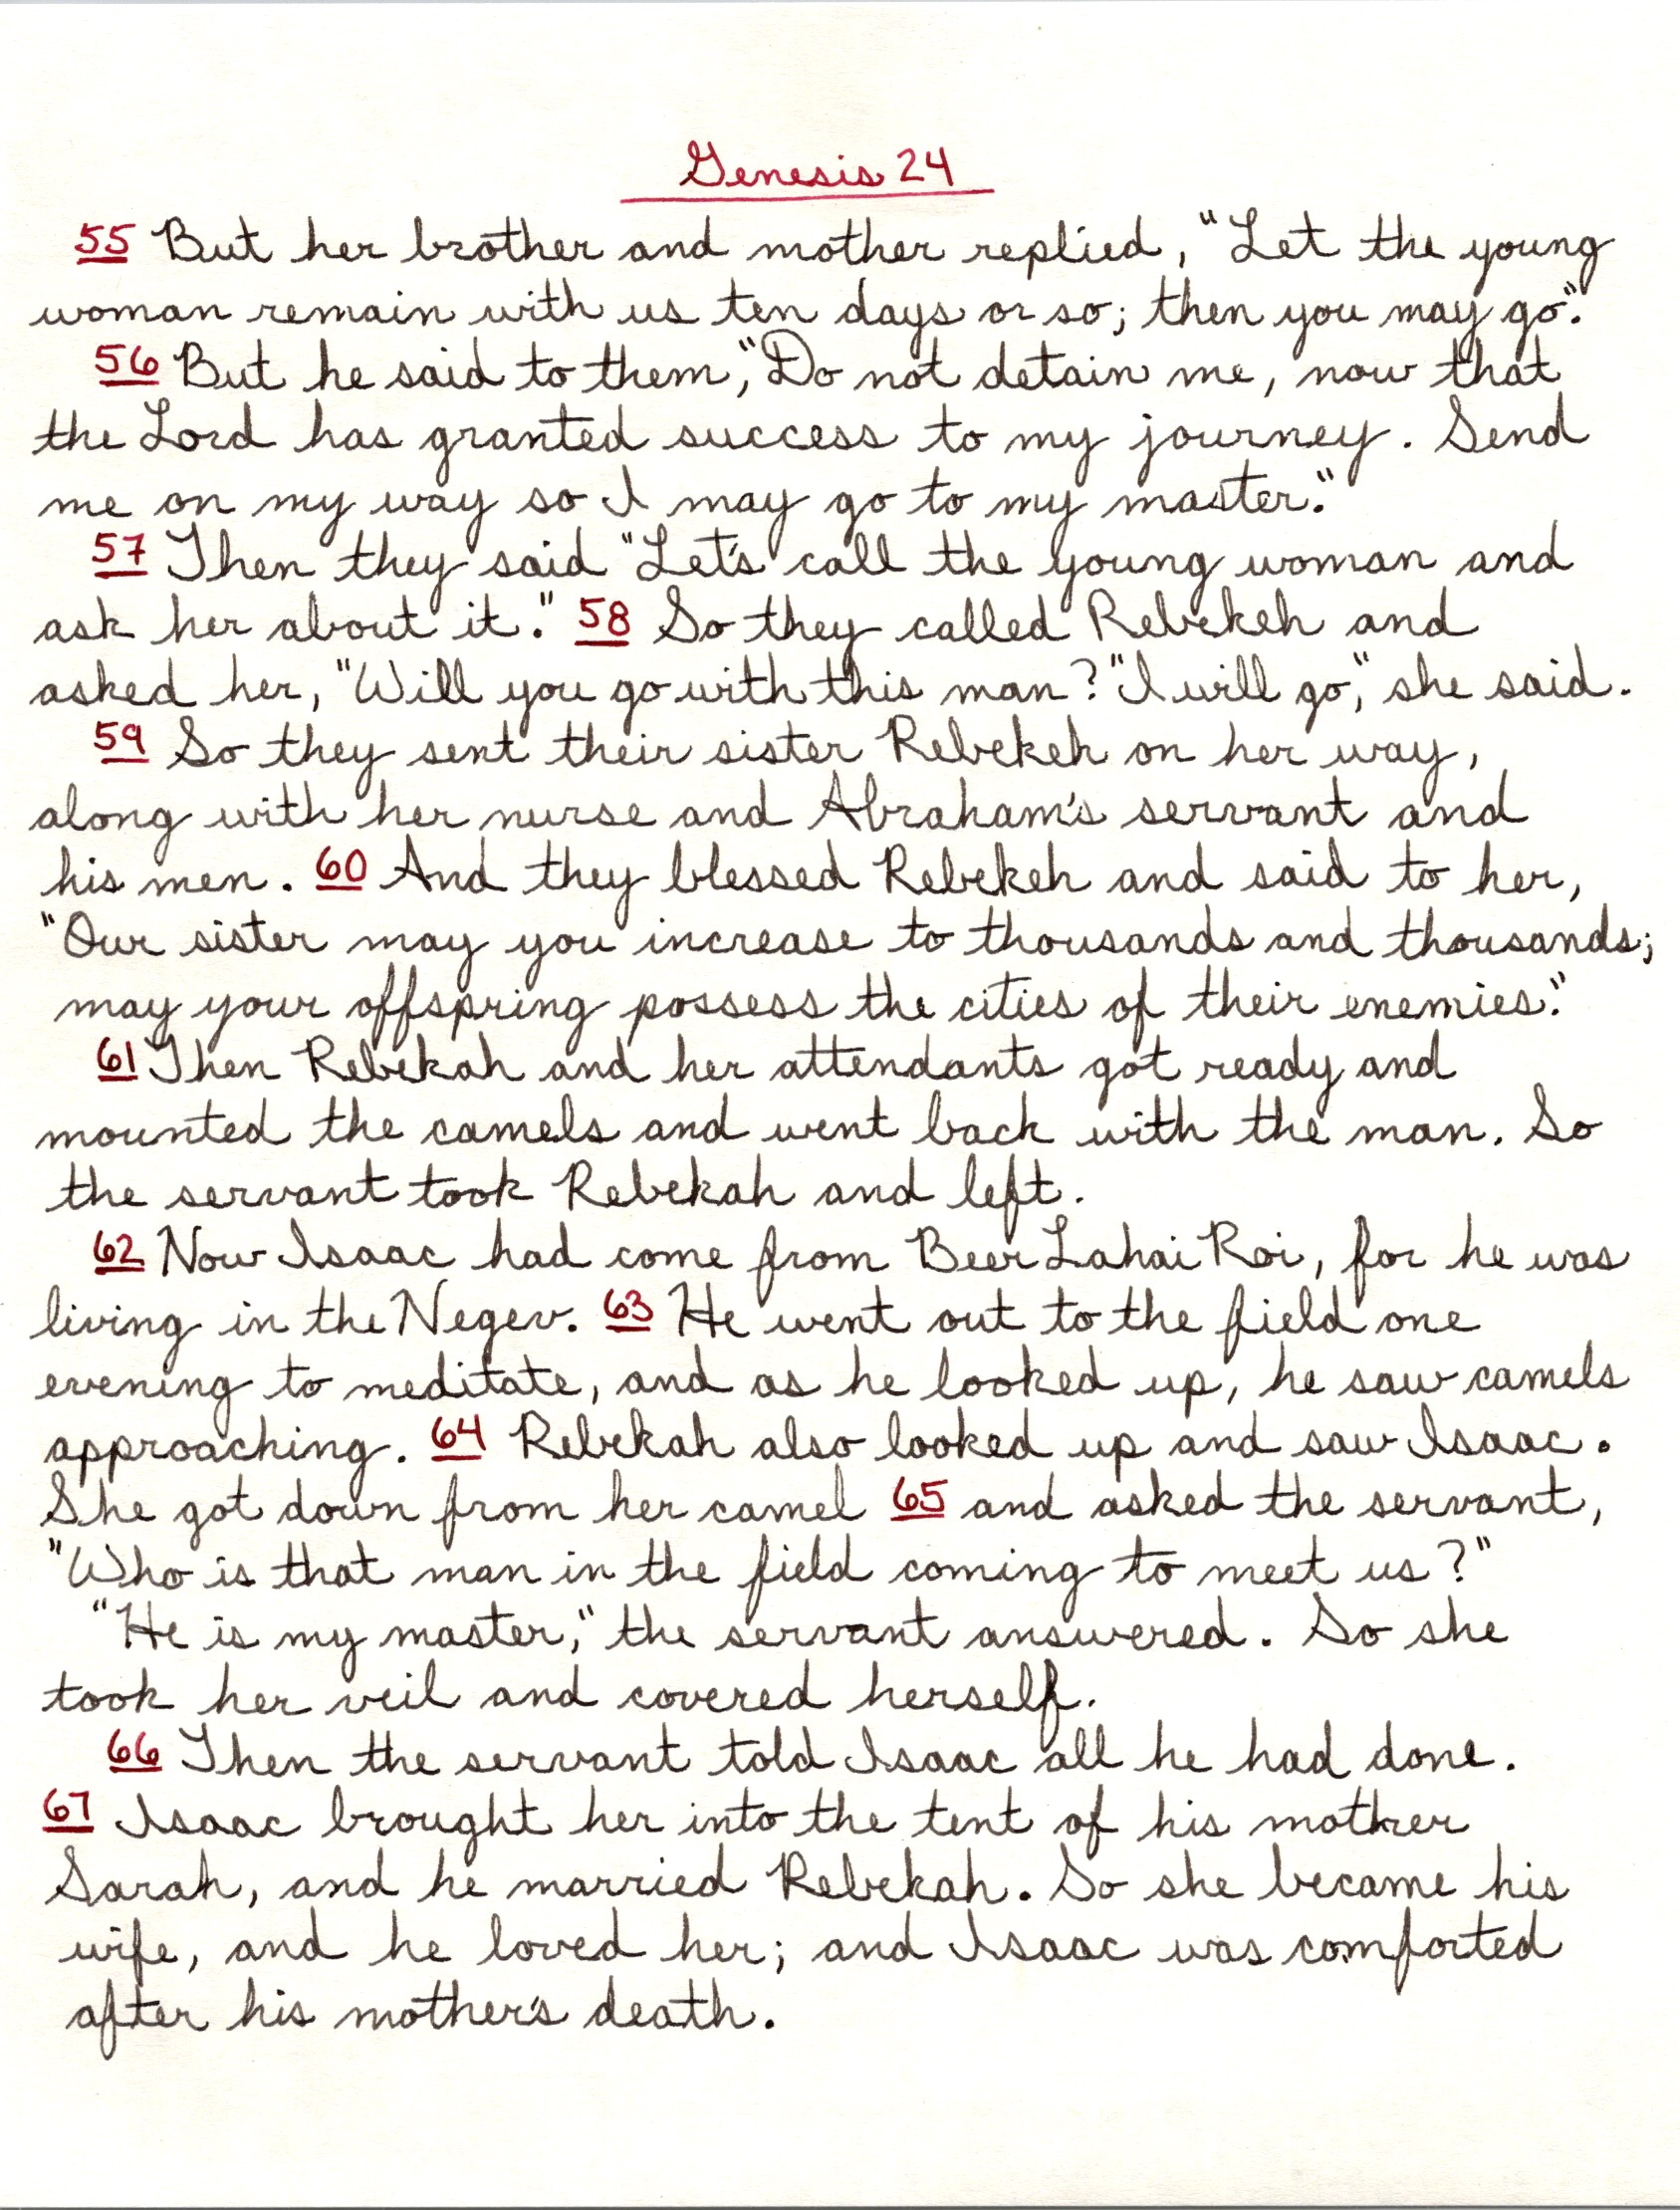 Genesis 24
55 But her brother and mother replied, "Let the young
woman remain with us ten days or so; then you may go."
56 But he said to them, "Do not detain me, now that
the Lord has granted success to my journey. Send
me on my way so I may go to my master."
57 Then they said "Let's call the young woman and
ask her about it." 58 So they called Rebekeh and
asked her, "Will you go with this man?" "I will go," she said.
59 So they sent their sister Rebekeh on her way,
along with her nurse and Abraham's servant and
his men. 60 And they blessed Rebekeh and said to her,
"Our sister may you increase to thousands and thousands;
may your offspring possess the cities of their enemies."
61 Then Rebekah and her attendants got ready and
mounted the camels and went back with the man. So
the servant took Rebekah and left.
62 Now Isaac had come from Beer Lahai Roi, for he was
living in the Negev. 63 He went out to the field one
evening to meditate, and as he looked up, he saw camels
approaching. 64 Rebekah also looked up and saw Isaac.
She got down from her camel 65 and asked the servant,
"Who is that man in the field coming to meet us?"
"He is my master," the servant answered. So she
took her veil and covered herself.
66 Then the servant told Isaac all he had done.
67 Isaac brought her into the tent of his mother
Sarah, and he married Rebekah. So she became his
wife, and he loved her; and Isaac was comforted
after his mother's death.